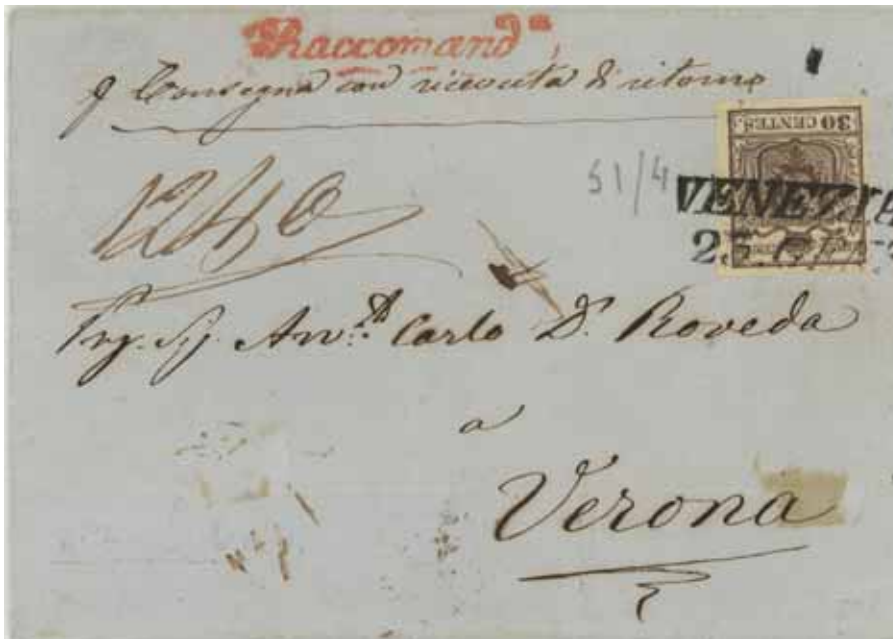 Raccomand.ta
Consegna con ricevuta di ritorno
30 CENTES.
51/4
VENEZIA
1240
Avv.to Carlo Dr. Roveda
a
Verona